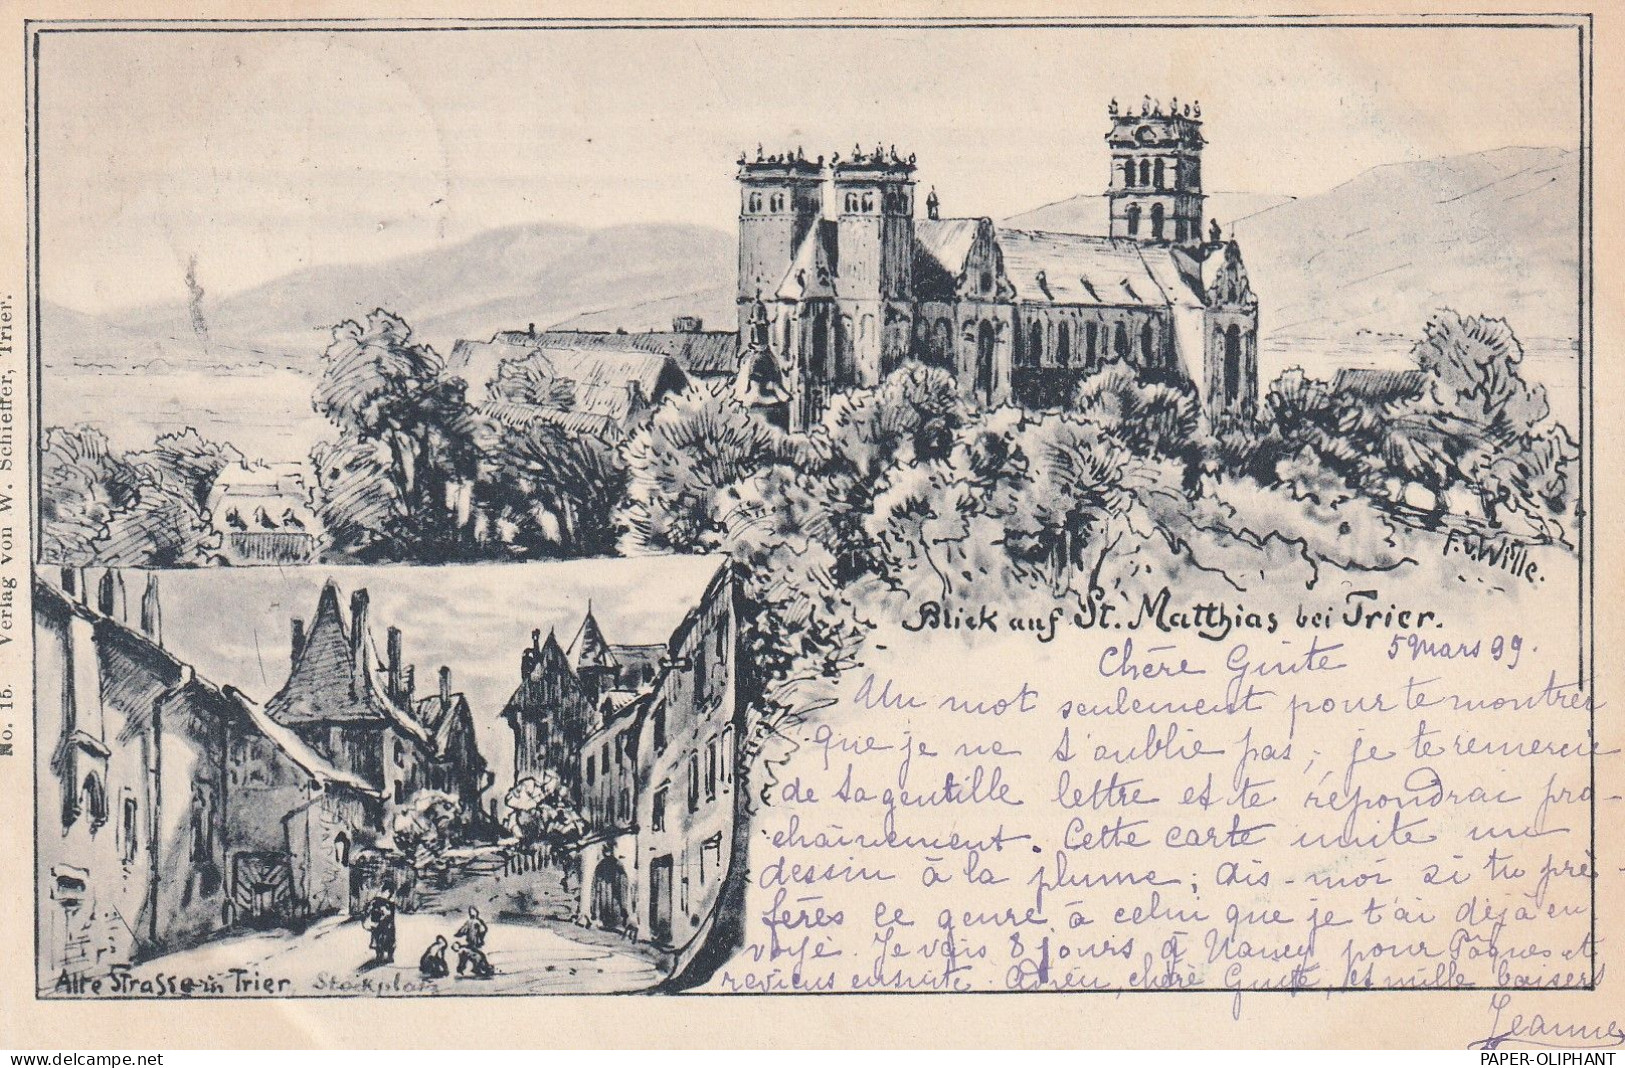 No. 15. Verlag von W. Schieffer, Trier.
F. v. Wille.
Blick auf St. Matthias bei Trier.
Alte Strasse in Trier, Stockplatz
Chère Guite 5 Mars 99.
Un mot seulement pour te montrer
que je ne t'oublie pas; je te remercie
de ta gentille lettre et te répondrai pro-
chainement. Cette carte imite un
dessin à la plume; dis-moi si tu pré-
fères ce genre à celui que je t'ai déjà en
voyé. Je vais 8 jours à Nancy pour Pâques et
reviens ensuite. Adieu, chère Guite, et mille baisers
Jeanne
PAPER-OLIPHANT